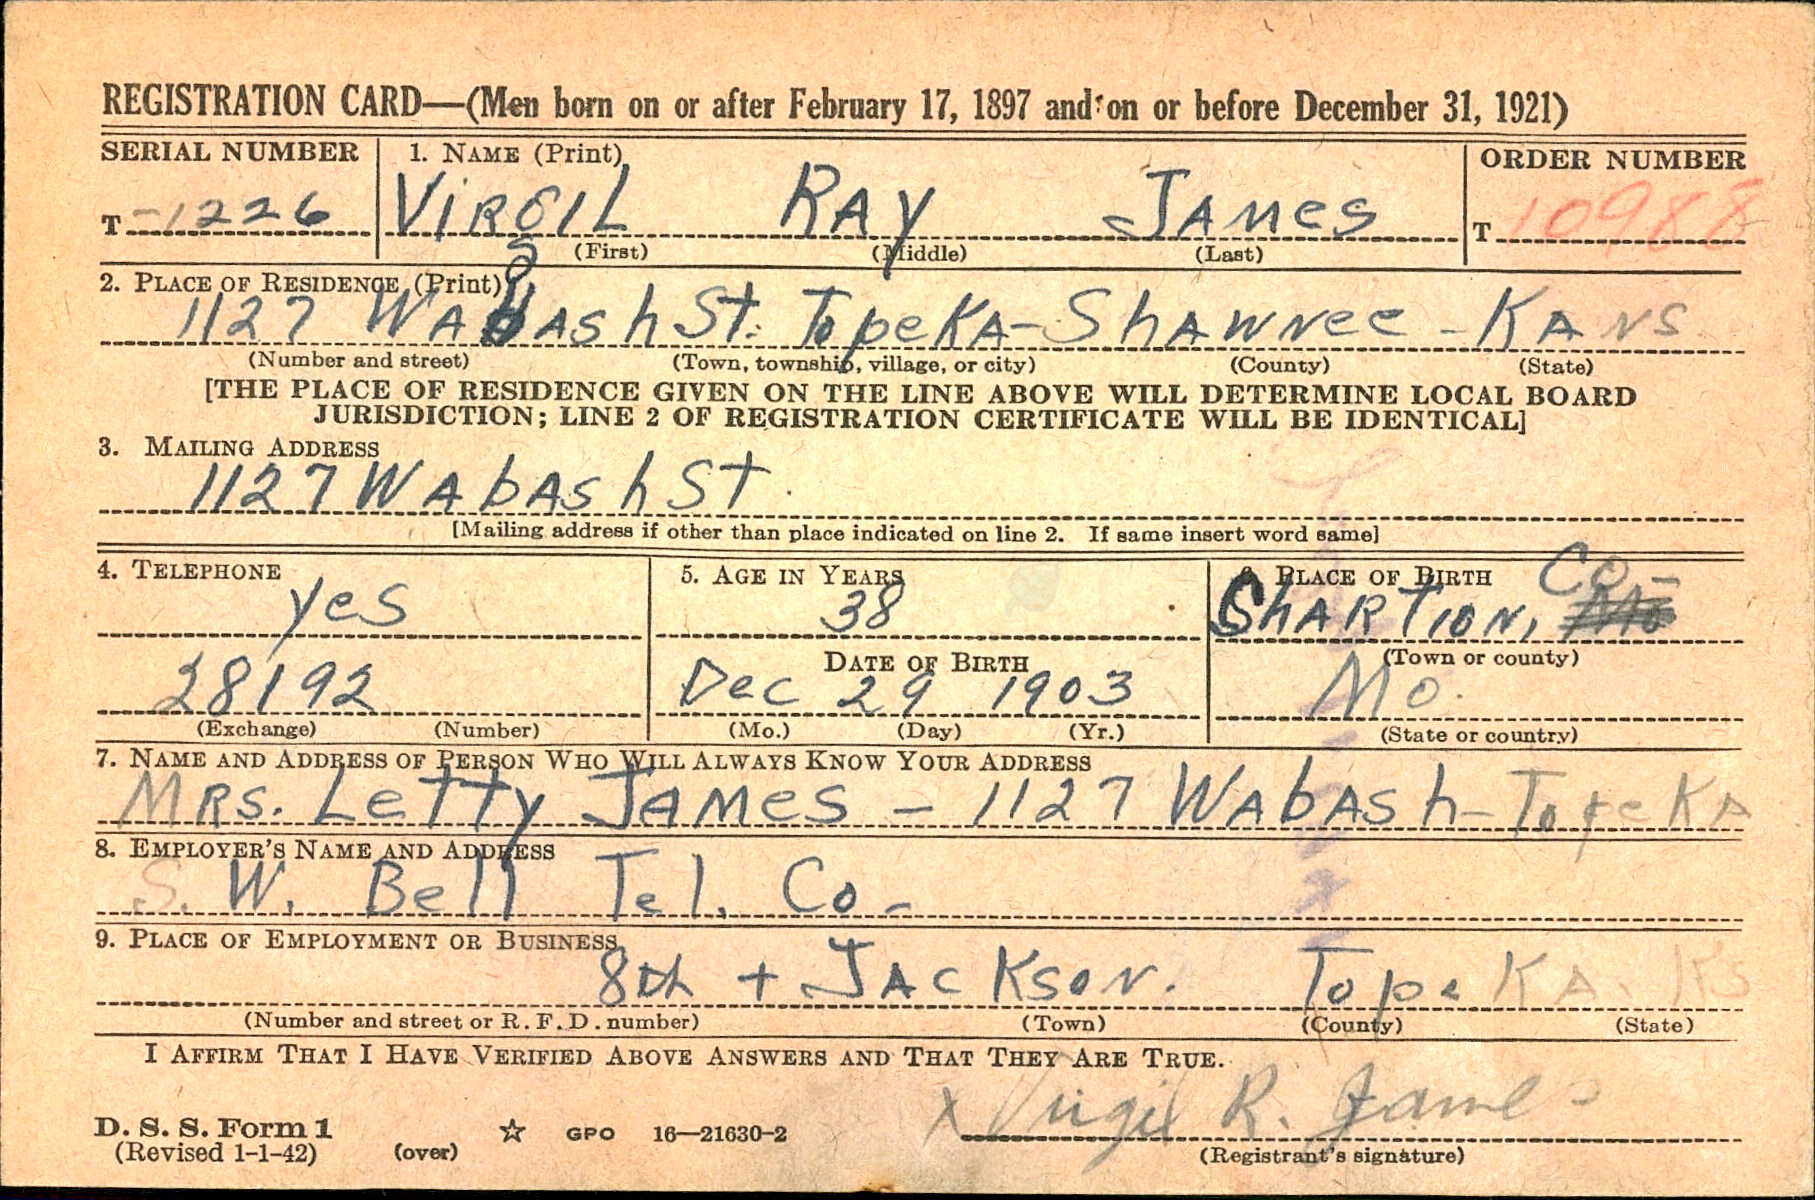 REGISTRATION CARD—(Men born on or after February 17, 1897 and on or before December 31, 1921)
SERIAL NUMBER 1. NAME (Print) ORDER NUMBER
T -1226 VIRGIL RAY JAMES T 10988
(First) (Middle) (Last)
2. PLACE OF RESIDENCE (Print)
1127 WAbASh St. TopeKA - ShAwNee - KANS
(Number and street) (Town, township, village, or city) (County) (State)
[THE PLACE OF RESIDENCE GIVEN ON THE LINE ABOVE WILL DETERMINE LOCAL BOARD
JURISDICTION; LINE 2 OF REGISTRATION CERTIFICATE WILL BE IDENTICAL]
3. MAILING ADDRESS
1127 WAbASh St.
[Mailing address if other than place indicated on line 2. If same insert word same]
4. TELEPHONE 5. AGE IN YEARS 6. PLACE OF BIRTH Co-
yes 38 ShARTION, Mo
DATE OF BIRTH (Town or county)
28192 Dec 29 1903 Mo.
(Exchange) (Number) (Mo.) (Day) (Yr.) (State or country)
7. NAME AND ADDRESS OF PERSON WHO WILL ALWAYS KNOW YOUR ADDRESS
MRS. LeTTy JAMes - 1127 WAbASh - TopeKA
8. EMPLOYER'S NAME AND ADDRESS
S. W. Bell Tel. Co -
9. PLACE OF EMPLOYMENT OR BUSINESS
8th + JAcKsoN. TopeKA. Ks
(Number and street or R. F. D. number) (Town) (County) (State)
I AFFIRM THAT I HAVE VERIFIED ABOVE ANSWERS AND THAT THEY ARE TRUE.
x Virgil R. James
D. S. S. Form 1
(Revised 1-1-42) (over) GPO 16—21630-2 (Registrant's signature)